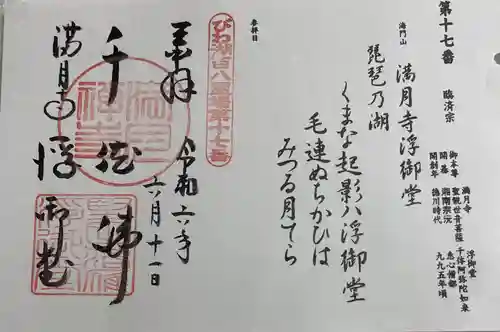 第十七番 臨済宗
海門山 満月寺浮御堂
満月寺 浮御堂
御本尊 聖観世音菩薩 千体阿弥陀如来
開基 湘南宗沅 恵心僧都
開創年 徳川時代 九九五年頃
琵琶乃湖
くまな起影ハ浮御堂
毛連ぬちかひは
みつる月てら
参拝日
びわ湖百八霊場第十七番
奉拝
令和六年
六月十一日
千体佛
満月寺 浮御堂